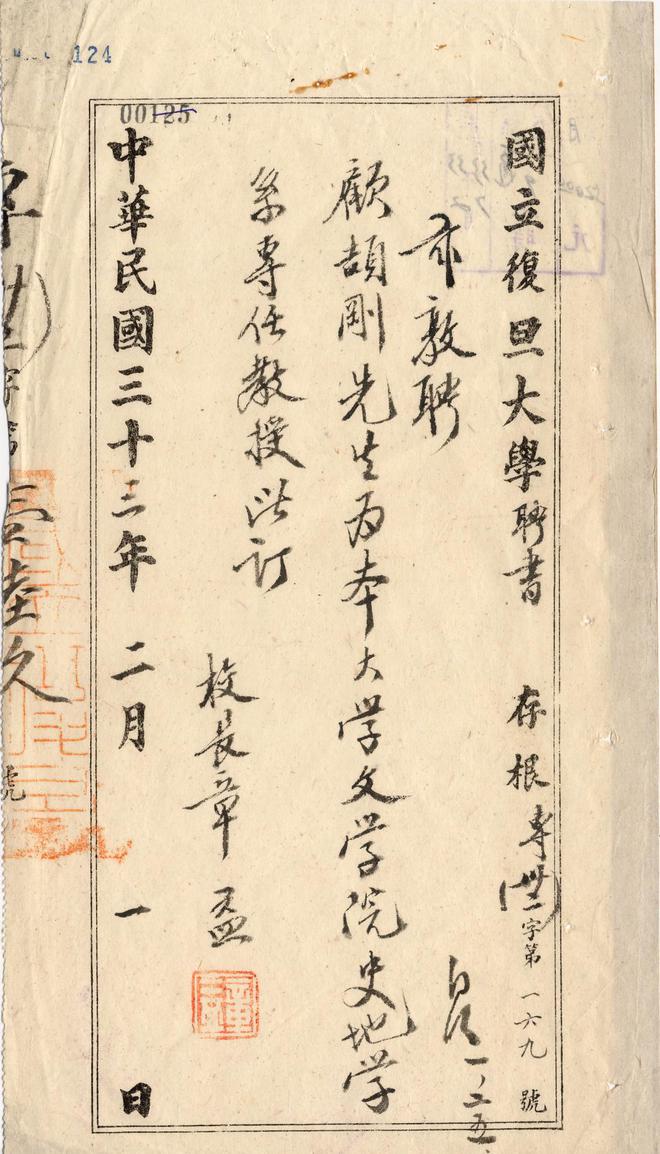 124
00125
國立復旦大學聘書 存根 專(卅二)字第一六九號
一、二五
敦聘
顧頡剛先生為本大学文学院史地学
系專任教授此訂
校長章益
中華民國三十三年 二月 一 日
號